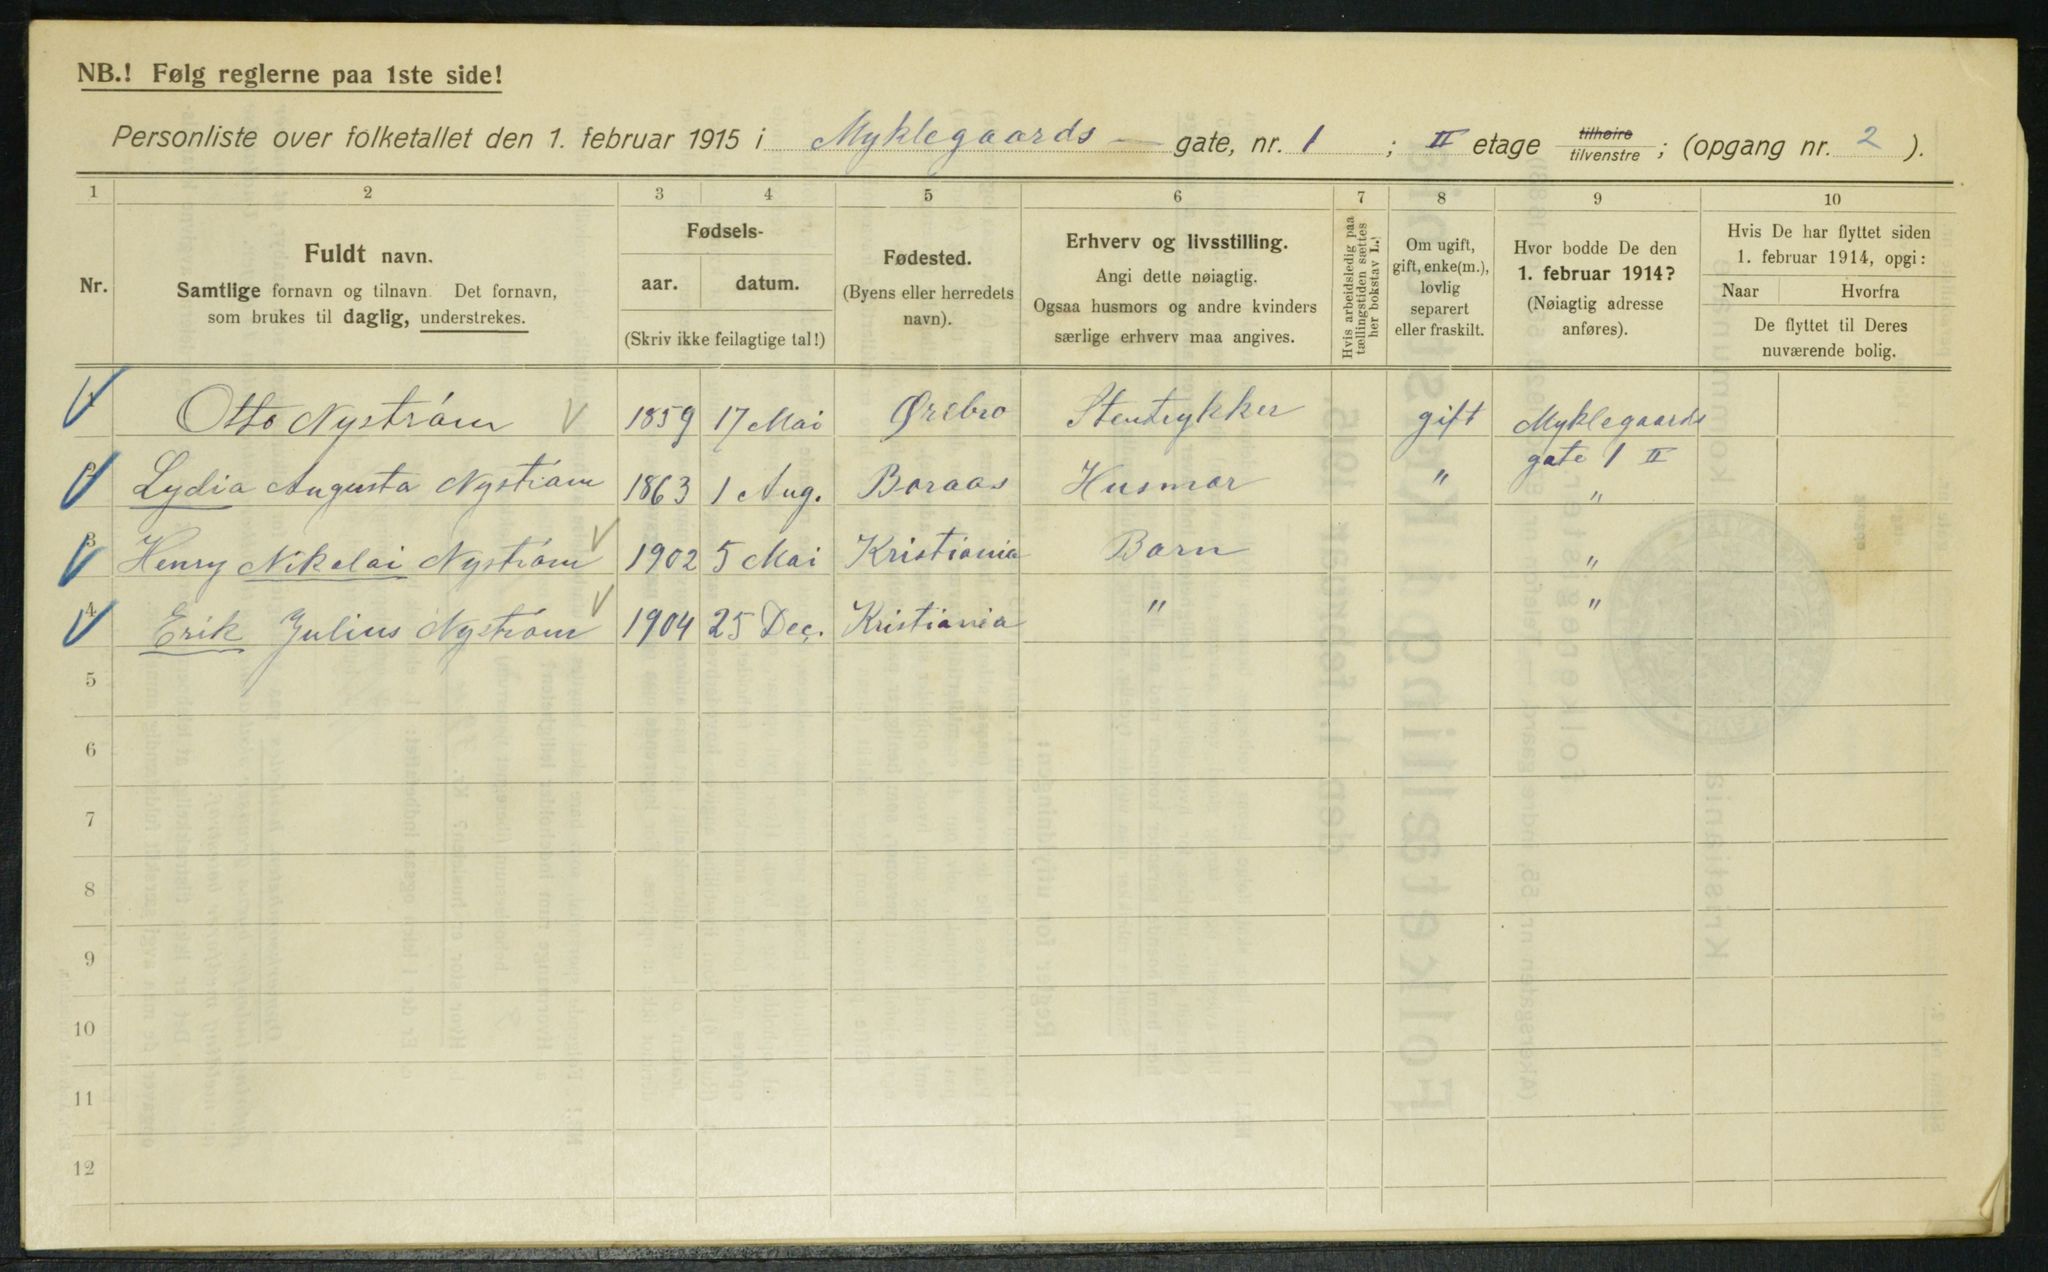 NB.! Følg reglerne paa 1ste side!
Personliste over folketallet den 1. februar 1915 i Myklegaards — gate, nr. 1 ; II etage tilhøire tilvenstre ; (opgang nr. 2 ).
1 2 3 4 5 6 7 8 9 10
Nr.
Fuldt navn.
Samtlige fornavn og tilnavn. Det fornavn,
som brukes til daglig, understrekes.
Fødsels-
aar. datum.
(Skriv ikke feilagtige tal!)
Fødested.
(Byens eller herredets
navn).
Erhverv og livsstilling.
Angi dette nøiagtig.
Ogsaa husmors og andre kvinders
særlige erhverv maa angives.
Hvis arbeidsledig paa
tællingstiden sættes
her bokstav L.!
Om ugift,
gift, enke(m.),
lovlig
separert
eller fraskilt.
Hvor bodde De den
1. februar 1914?
(Nøiagtig adresse
anføres).
Hvis De har flyttet siden
1. februar 1914, opgi:
Naar Hvorfra
De flyttet til Deres
nuværende bolig.
1 Otto Nyström 1859 17 Mai Ørebro Stentrykker gift Myklegaards
gate 1 II
2 Lydia Augusta Nyström 1863 1 Aug. Boraas Husmor " "
3 Henry Nikolai Nyström 1902 5 Mai Kristiania Barn "
4 Erik Julius Nyström 1904 25 Dec. Kristiania " "
5
6
7
8
9
10
11
12